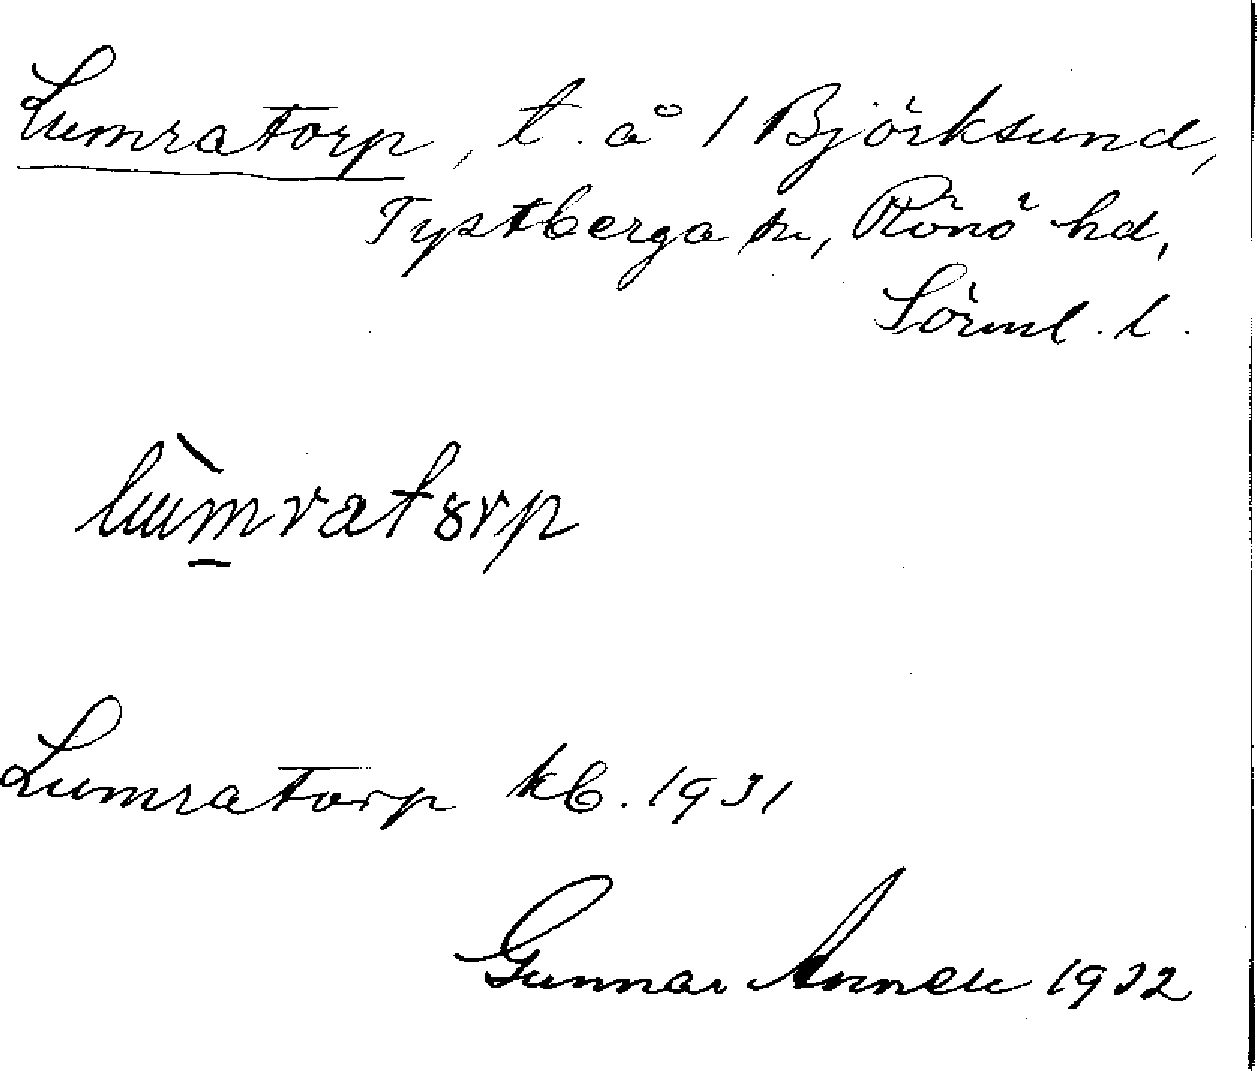 Lumratorp, t. å 1 Björksund,
Tystberga sn, Rönö hd,
Sörml. l.
lùm̱ratorp
Lumratorp kb. 1931
Gunnar 1932